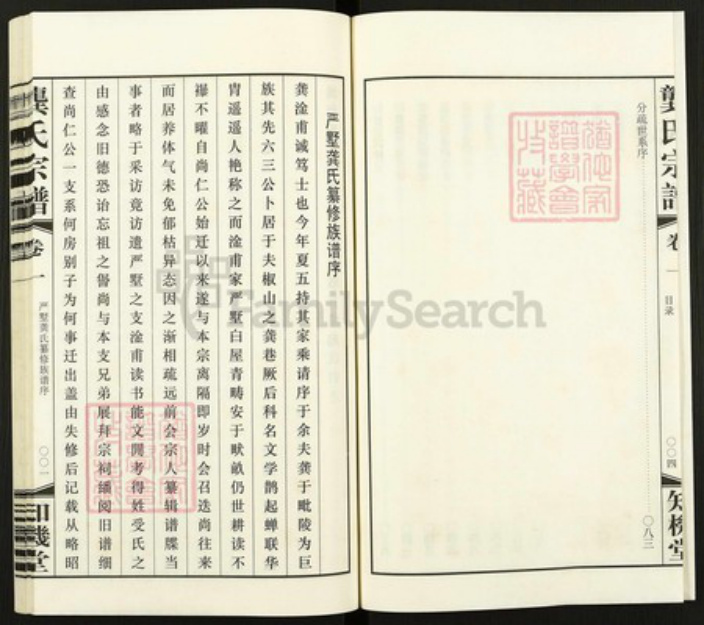 龚氏宗谱
卷一
目录
〇〇四
分疏世系序
〇八三
严墅龚氏纂修族谱序
龚淦甫诚笃士也今年夏五持其家乘请序于余夫龚于毗陵为巨
族其先六三公卜居于夫椒山之龚巷厥后科名文学鹊起蝉联华
胄遥遥人艳称之而淦甫家严墅白屋青畴安于畎畝仍世耕读不
襮不曜自尚仁公始迁以来遂与本宗离隔即岁时会召迭尚往来
而居养体气未免郁枯异态因之渐相疏远前会宗人纂辑谱牒当
事者略于采访竟访遗严墅之支淦甫读书能文闲考得姓受氏之
由感念旧德恐诒忘祖之誚尚与本支兄弟展拜宗祠繙阅旧谱细
查尚仁公一支系何房别子为何事迁出盖由失修后记载从略昭
龚氏宗谱
卷一
严墅龚氏纂修族谱序
〇〇一
FamilySearch